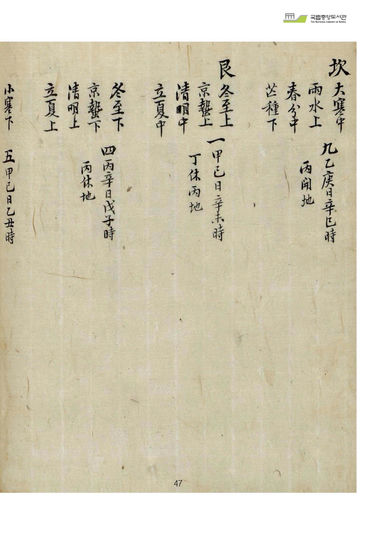 국립중앙도서관
坎 大寒中 九 乙庚日辛巳時
雨水上 丙開地
春分中
芒種下
艮 冬至上 一 甲己日辛未時
京蟄上 丁休丙地
清明中
立夏中
冬至下 四 丙辛日戊子時
京蟄下 丙休地
清明上
立夏上
小寒下 五 甲己日乙丑時
47